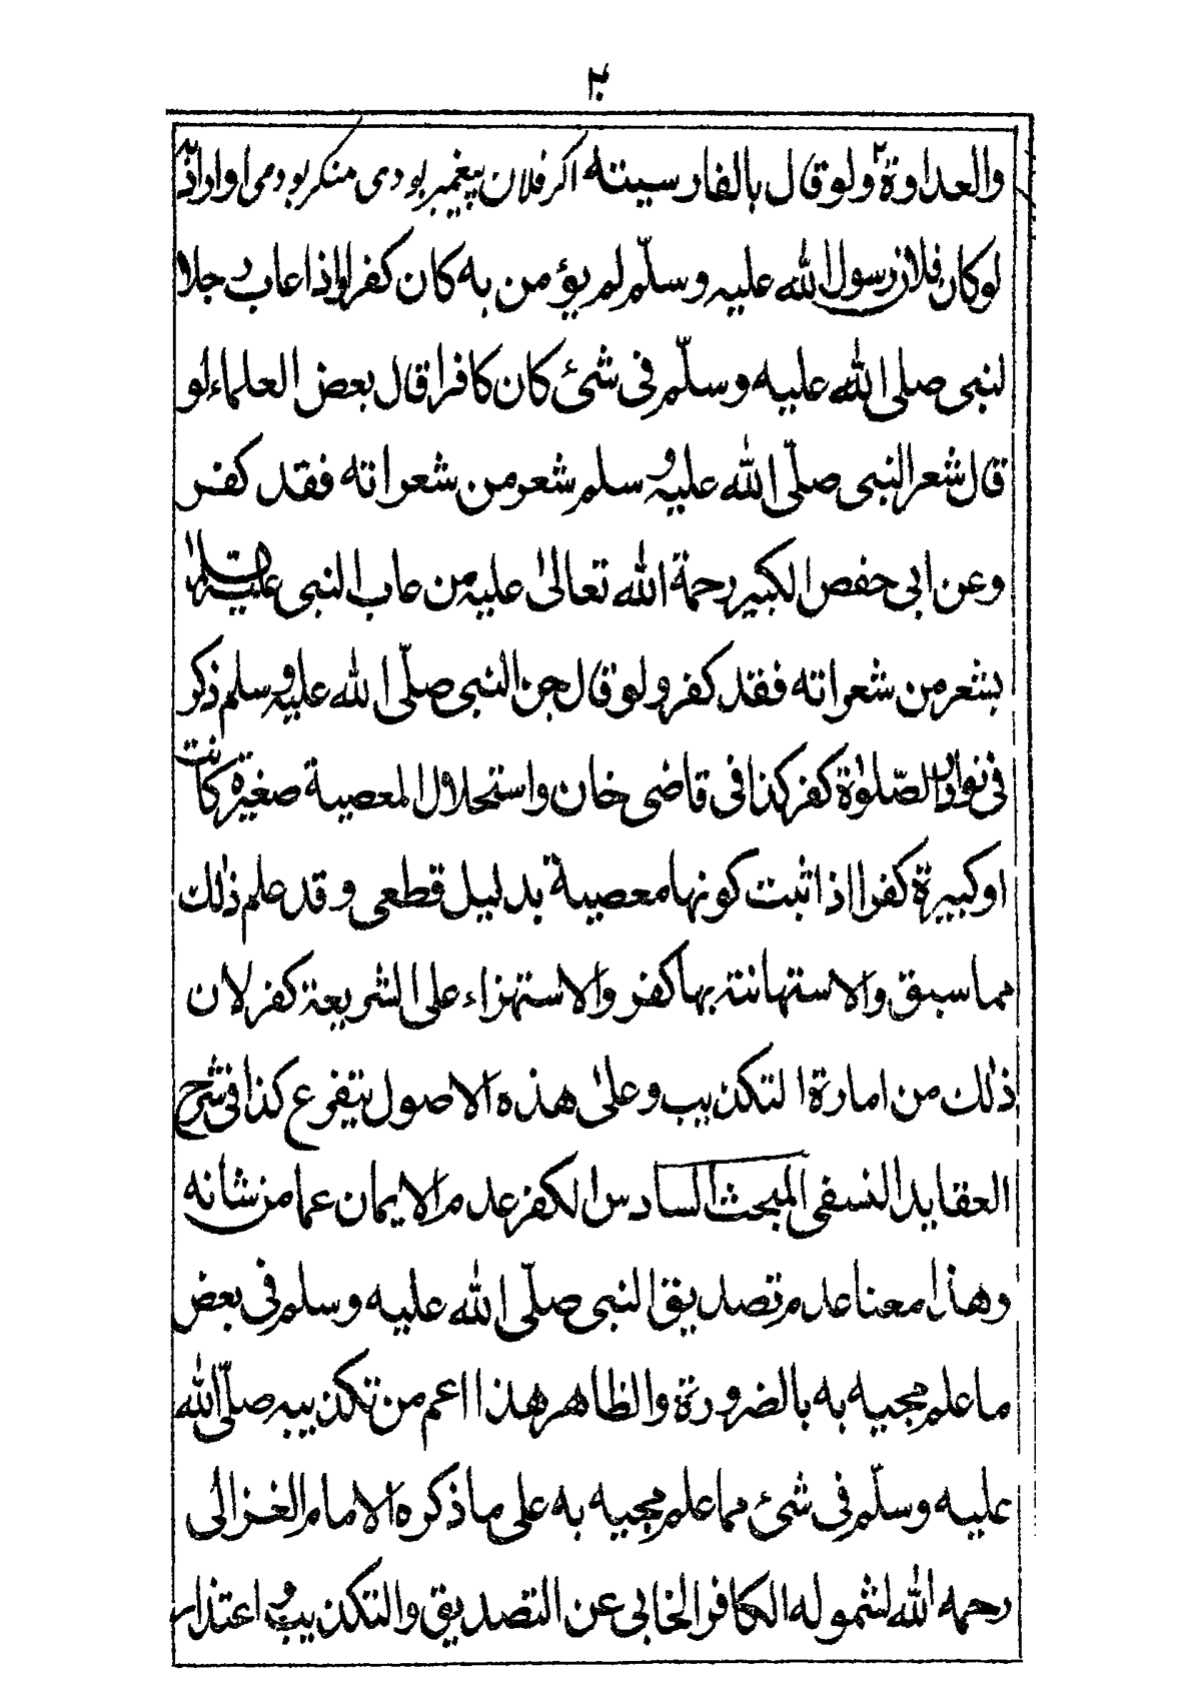 ٣٠
والعداوة ولو قال بالفارسيته اكر فلان پيغمبر بودى منكر بودمى او اراد به
لو كان فلان رسول الله عليه وسلّم لم يؤمن به كان كفرا واذا عاب رجلا
لنبى صلى الله عليه وسلّم فى شئ كان كافرا قال بعض العلماء لو
قال شعر النبى صلّى الله عليه و سلم شعر من شعراته فقد كفر
وعن ابى حفص الكبير رحمة الله تعالىٰ عليه من عاب النبى عليه السلام
بشعر من شعراته فقد كفر ولو قال جن النبى صلّى الله عليه و سلم ذكر
فى نوادر الصّلوٰة كفر كذا فى قاضى خان واستحلال المعصية صغيرة كانت
او كبيرة كفر اذا ثبت كونها معصية بدليل قطعى وقد علم ذٰلك
مما سبق والاستهانته بها كفر والاستهزاء على الشريعة كفر لان
ذٰلك من امارة التكذيب وعلىٰ هذه الاصول يتفرع كذا فى شرح
العقايد النسفى المبحث السادس الكفر عدم الايمان عما من شانه
وهذا معنا عدم تصديق النبى صلّى الله عليه وسلم فى بعض
ما علم مجيه به بالضرورة والظاهر هذا اعم من تكذيبه صلّى الله
عليه وسلّم فى شئ مما علم مجيه به على ما ذكره الامام الغزالى
رحمه الله لشموله الكافر الخالى عن التصديق والتكذيب و اعتذار